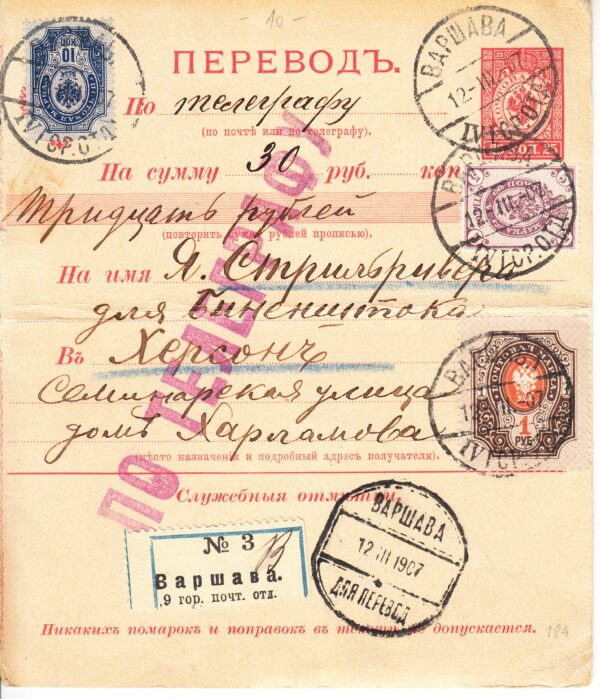 - 10 -
ПЕРЕВОДЪ.
По телеграфу
(по почтѣ или по телеграфу).
На сумму 30 руб. коп.
Тридцать рублей
(повторить сумму рублей прописью).
На имя Я.
для
Въ Херсонъ
Семинарская улица
домъ Харламова
(мѣсто назначенія и подробный адресъ получателя).
Служебныя отмѣтки.
ПО ТЕЛЕГРАФУ
№ 3
Варшава.
9 гор. почт. отд.
ВАРШАВА
12 III 1907
ДЛЯ ПЕРЕВОД
Никакихъ помарокъ и поправокъ въ не допускается.
184
ВАРШАВА
12-III-07
IV ГОР.ОТД.
ВАРШАВА
IV ГОР.ОТД.
10
МАРКА
5
1
РУБ
1
25
25